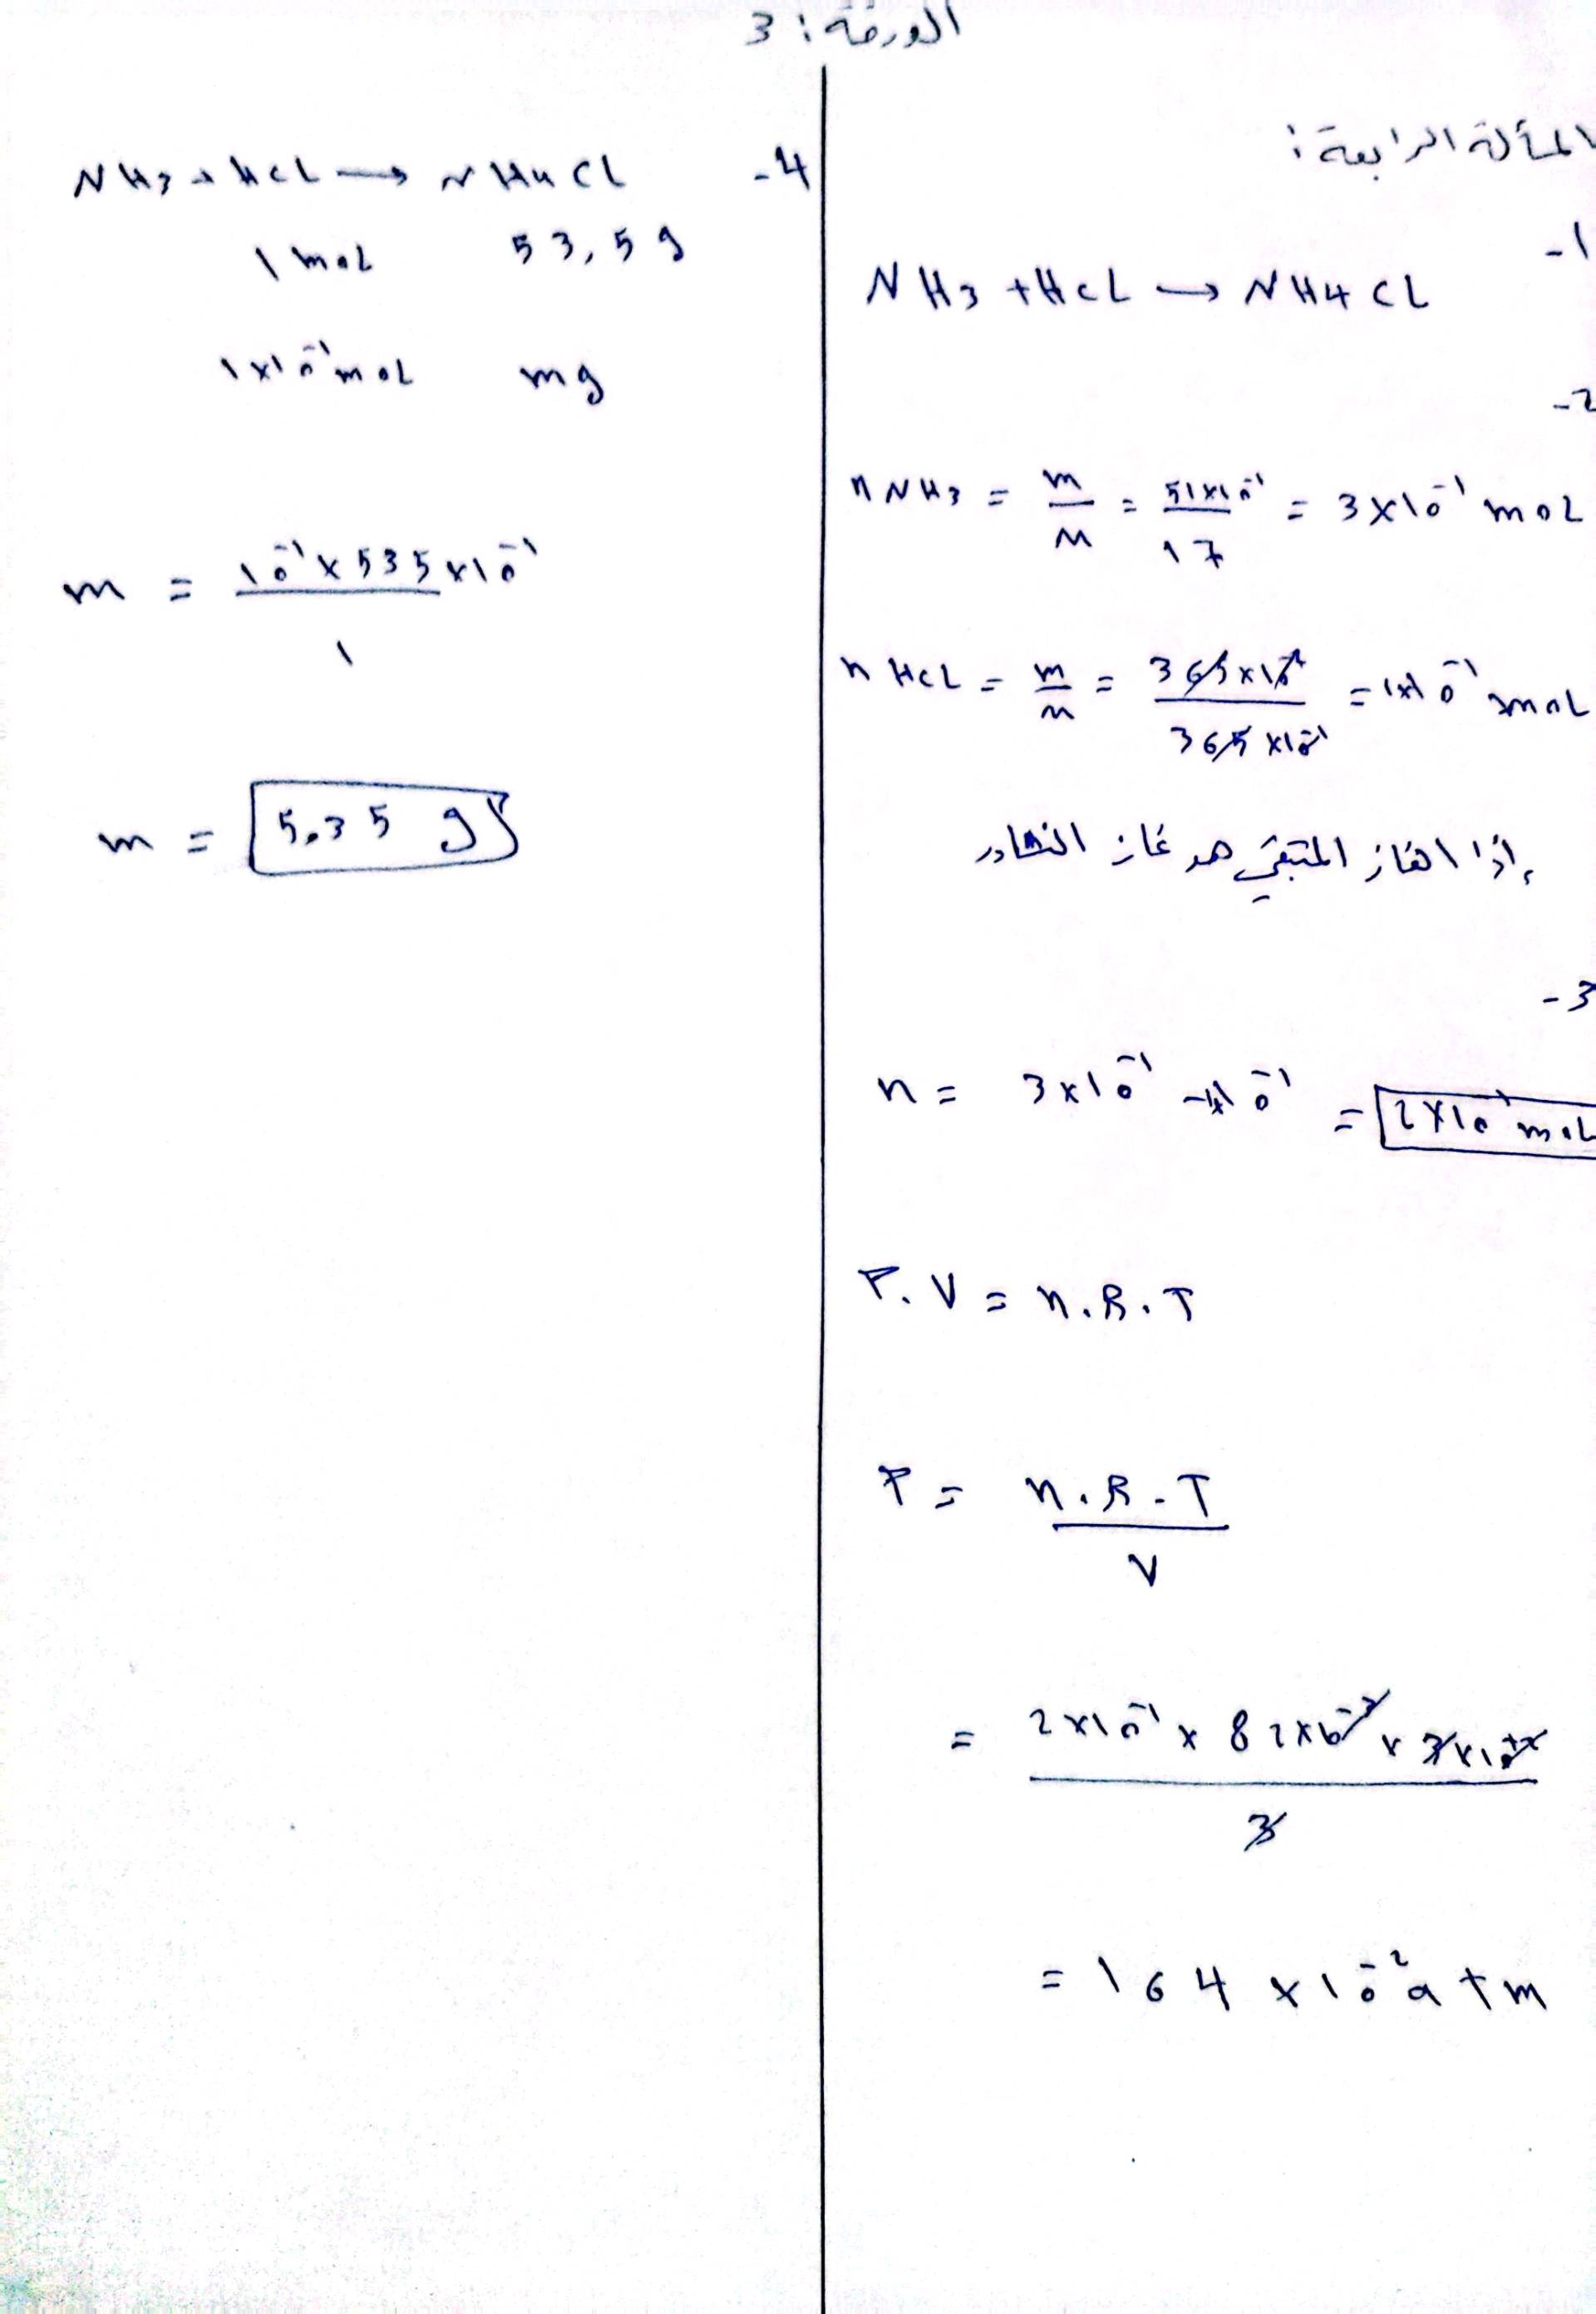 الورقة: 3
المسألة الرابعة:
-1
NH3 + HCL → NH4CL
-2
nNH3 = m/M = 51×10⁻¹/17 = 3×10⁻¹ moL
nHCL = m/M = 365×10⁻²/365×10⁻¹ = 1×10⁻¹ moL
إذا الغاز المتبقي هو غاز النشادر
-3
n = 3×10⁻¹ - 1×10⁻¹ = 2×10⁻¹ moL
P.V = n.R.T
P = n.R.T/V
= 2×10⁻¹ × 82×10⁻³ × 3×10⁺²/3
= 164 ×10⁻² atm
-4
NH3 + HCL → NH4CL
1 moL 53,5 g
1×10⁻¹ moL mg
m = 10⁻¹×535×10⁻¹/1
m = 5.35 g